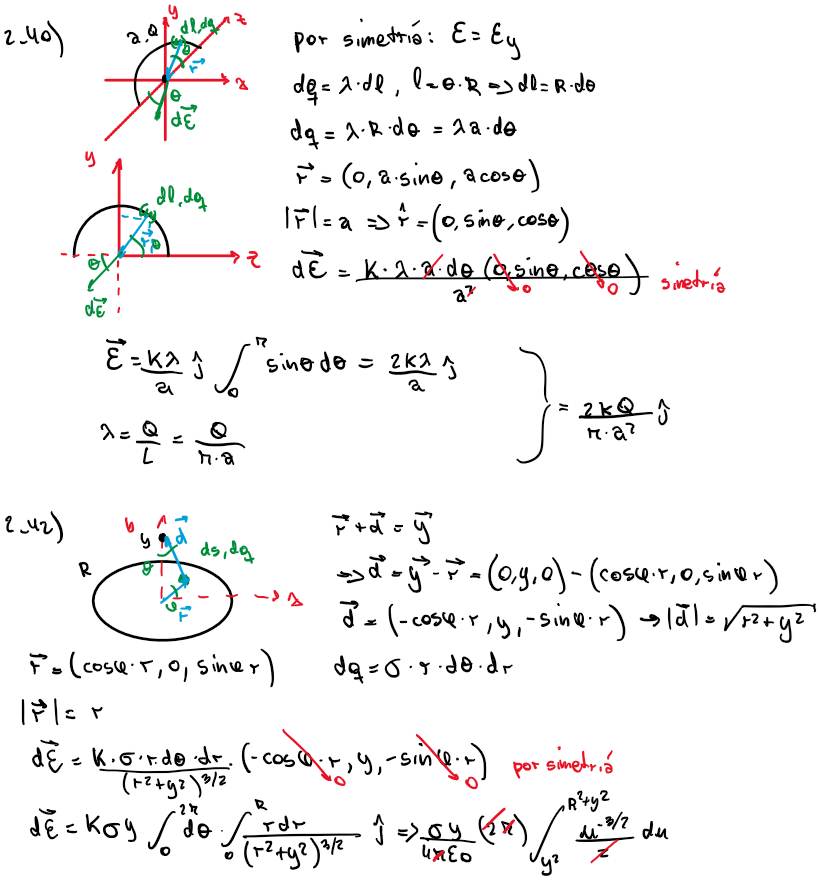 2.40)
y
z
a, Q
dl, dq
θ
r⃗
x
θ
dE⃗
por simetría: E = Ey
dq = λ·dl , l = θ·R => dl = R·dθ
dq = λ·R·dθ = λa·dθ
r⃗ = (0, a·sinθ, a cosθ)
|r⃗| = a => r̂ = (0, sinθ, cosθ)
dE⃗ = K·λ·a·dθ (0, sinθ, cosθ) / a² 0 0 simetría
y
dl, dq
r⃗
θ
z
θ
dE⃗
E⃗ = Kλ/a ĵ ∫₀^π sinθ dθ = 2Kλ/a ĵ
λ = Q/L = Q/(π·a)
} = 2KQ/(π·a²) ĵ
2.42)
b
y
d⃗
ds, dq
R
φ
r⃗
x
r⃗ + d⃗ = y⃗
=> d⃗ = y⃗ - r⃗ = (0, y, 0) - (cosφ·r, 0, sinφ r)
d⃗ = (-cosφ·r, y, -sinφ·r) → |d⃗| = √(r²+y²)
r⃗ = (cosφ·r, 0, sinφ r)
dq = σ·r·dθ·dr
|r⃗| = r
dE⃗ = K·σ·r·dθ·dr/(r²+y²)^3/2 · (-cosφ·r, y, -sinφ·r) 0 0 por simetría
dE⃗ = Kσy ∫₀^2π dθ · ∫₀^R r dr/(r²+y²)^3/2 ĵ => σy/(4πε0) (2π) ∫_y²^R²+y² u^-3/2/2 du